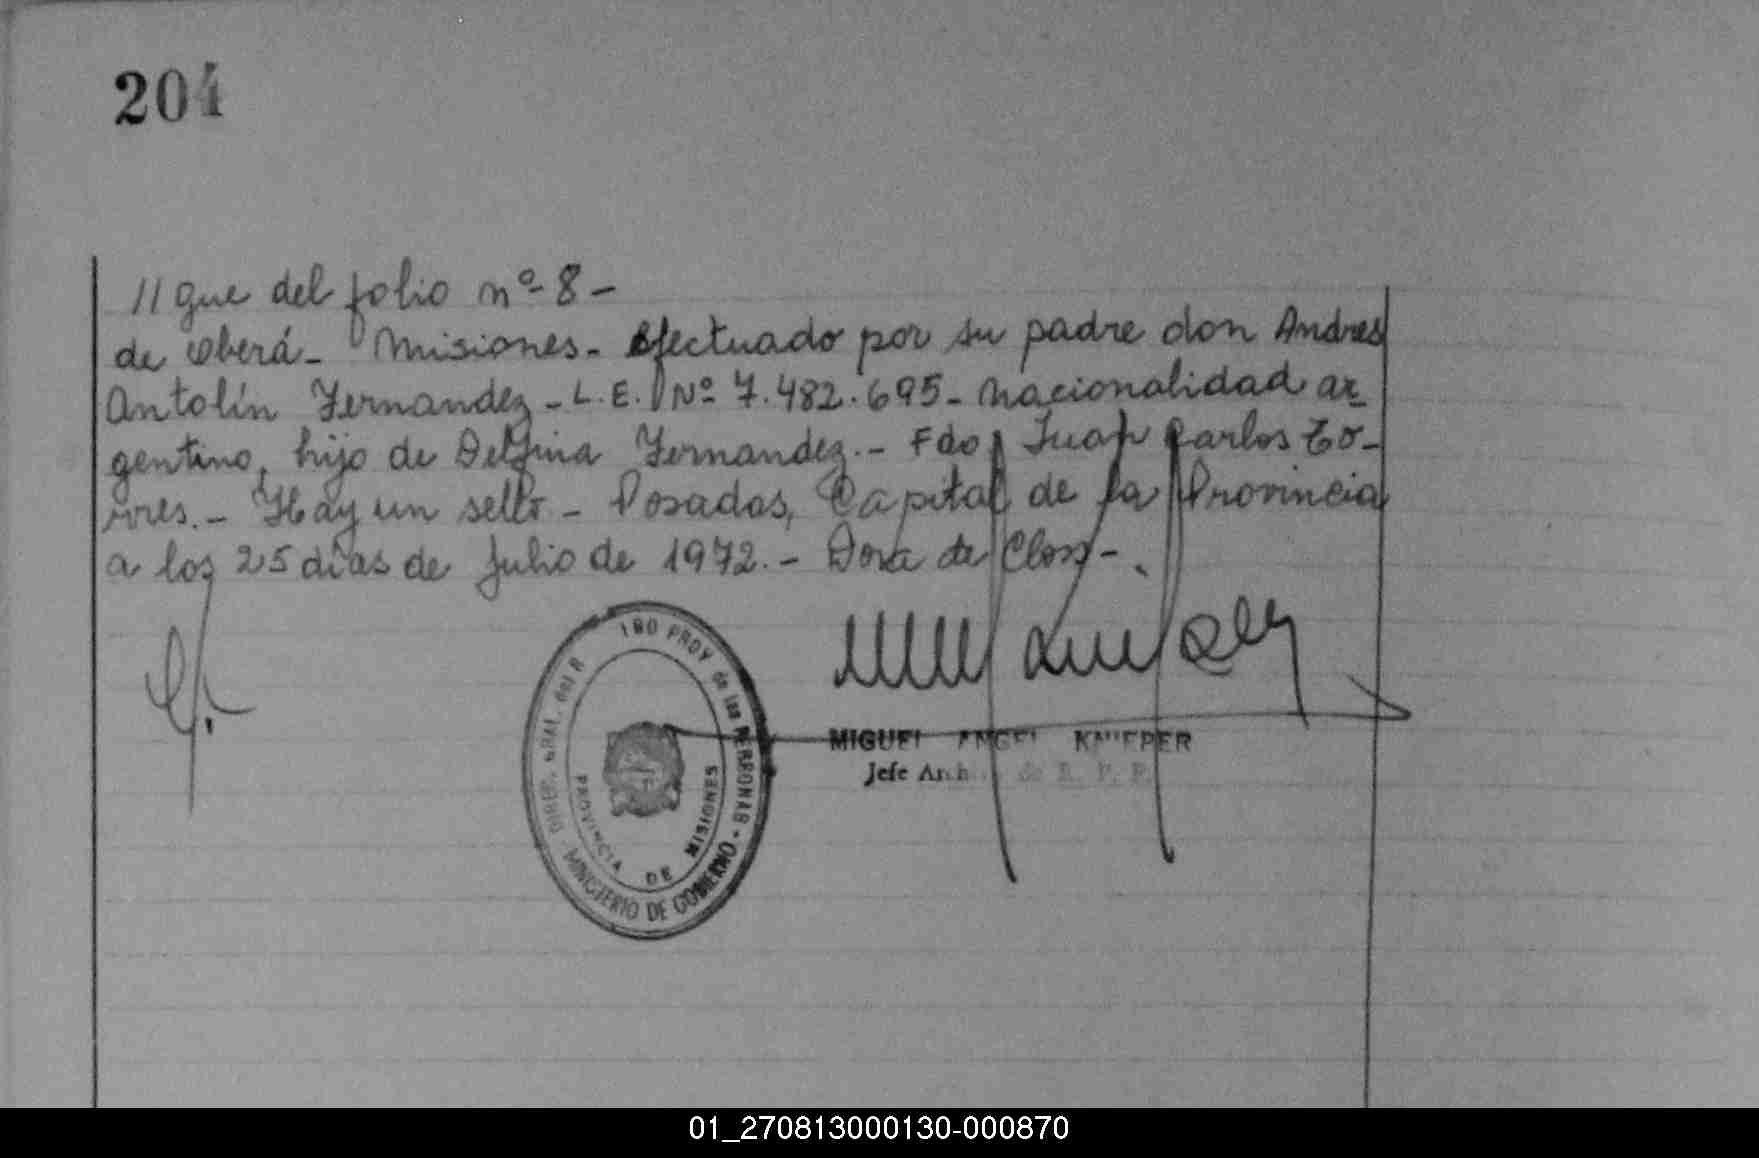 204
//gue del folio nº 8 -
de Oberá - Misiones - Efectuado por su padre don Andres
Antolín Fernandez - L.E. Nº 7.482.695 - Nacionalidad ar-
gentino, hijo de Delfina Fernandez. - Fdo Juan Carlos To-
rres. - Hay un sello - Posadas, Capital de la Provincia
a los 25 días de Julio de 1972. - Dora de Closs - .
MIGUEL ANGEL KNIEPER
Jefe Arch de R. P. P.
DIREC. GRAL. del R PROV de las PERSONAS - MINISTERIO DE GOBIERNO
PROVINCIA DE MISIONES
01_270813000130-000870